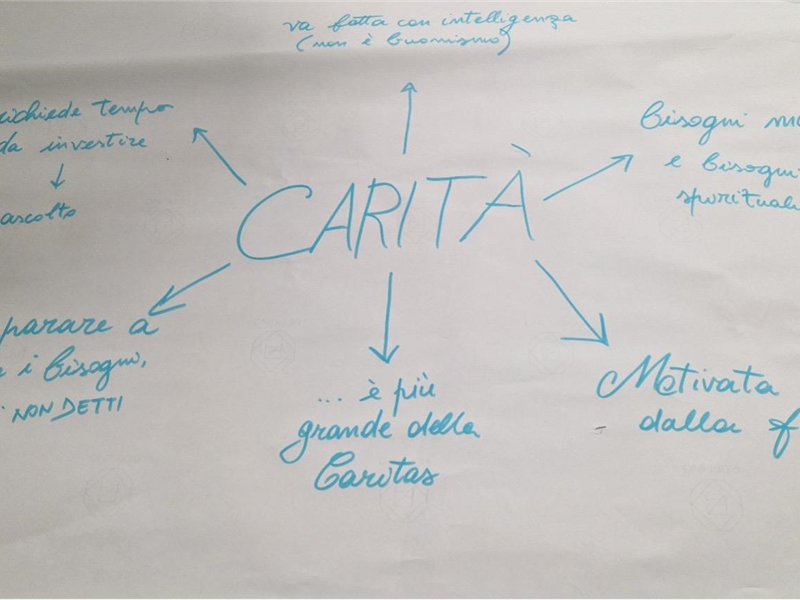 va fatta con intelligenza
(non è buonismo)
richiede tempo
da investire
ascolto
CARITÀ
bisogni
e bisogni
spirituali
parare a
i bisogni,
NON DETTI
... è più
grande della
Caritas
Motivata
dalla f